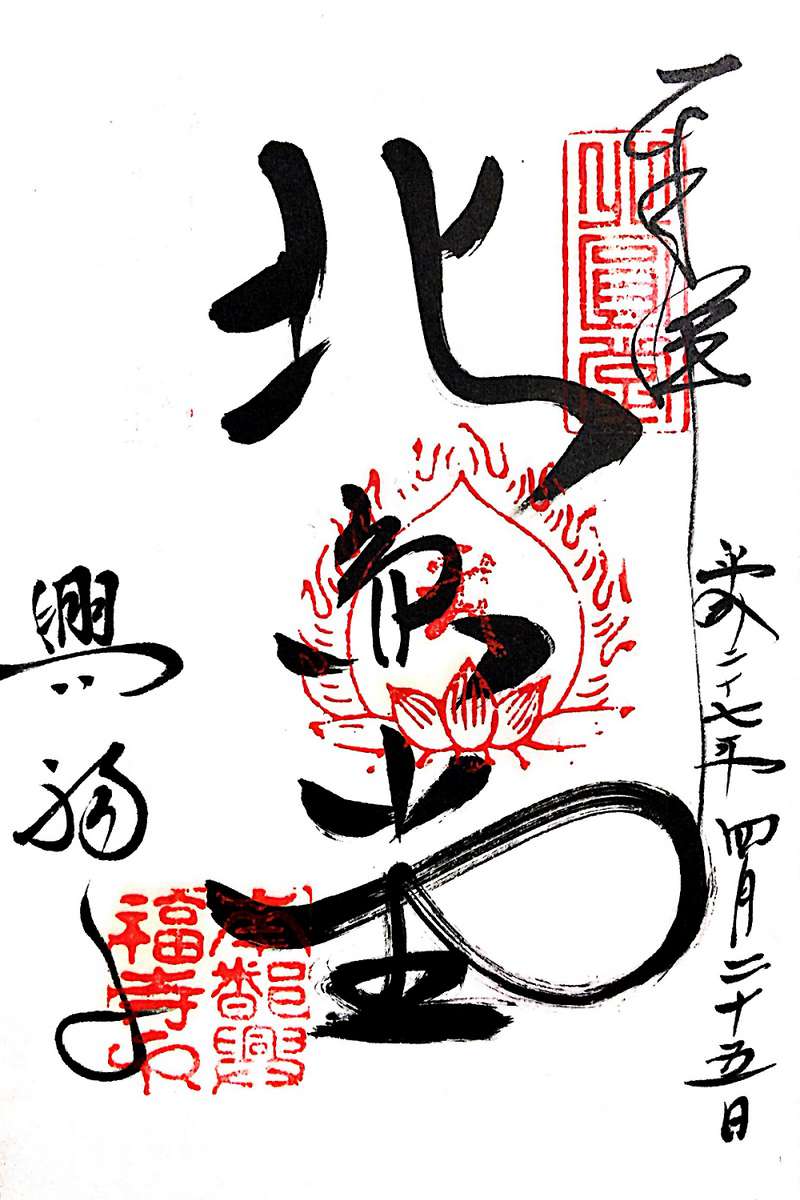 奉拝
平成二十七年四月二十五日
北圓堂
北圓堂
興福寺
南都興
福寺印